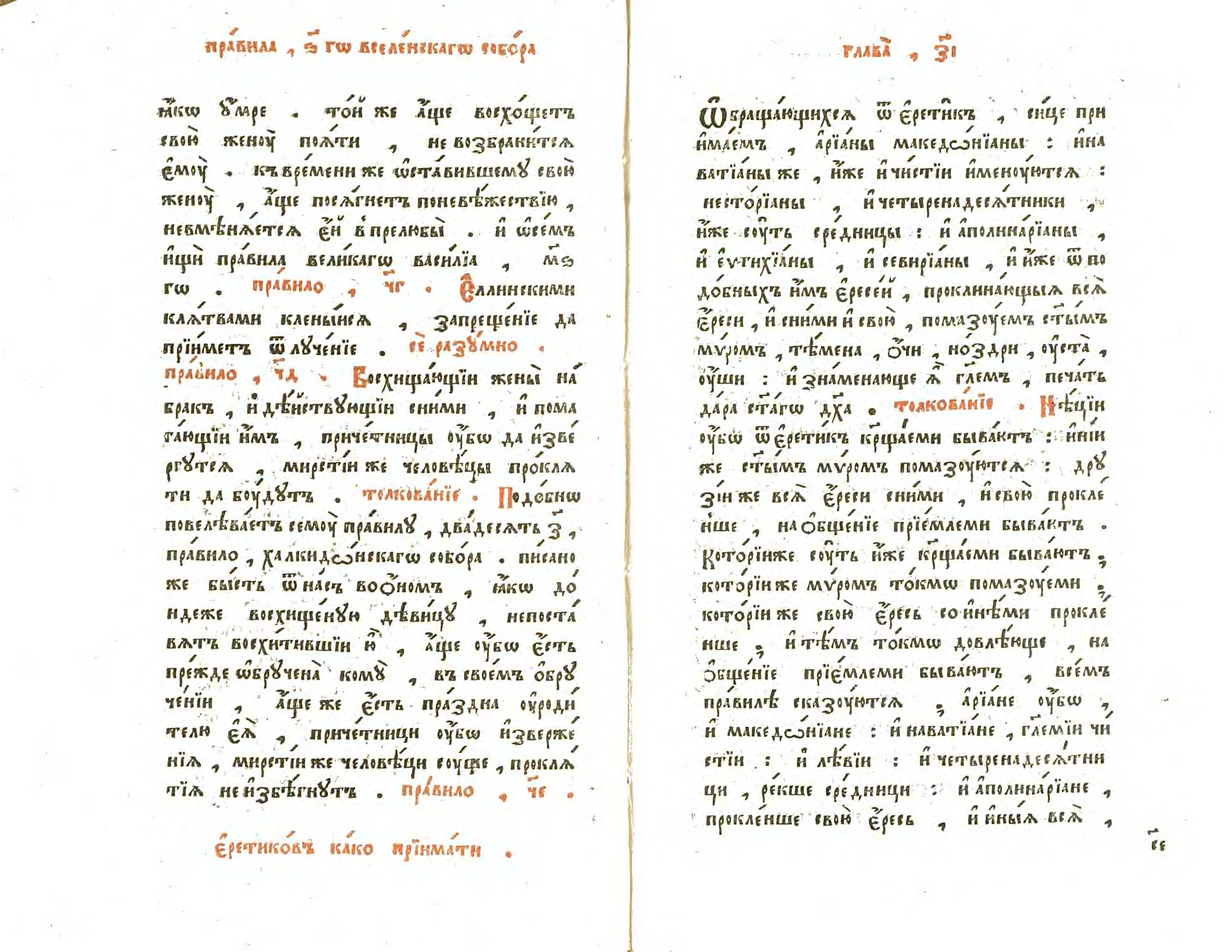 пра́вила , ѕ҃ гѡ вселе́нскагѡ собо́ра
ꙗ҆́кѡ ᲂу҆́мре . то́й же а҆́ще восхо́щетъ
свою̀ женоу̀ поѧ́ти , не возбрани́тсѧ
є҆моу̀ . къ вре́мени же ѡ҆ста́вившемꙋ свою̀
женоу̀ , а҆́ще посѧ́гнетъ поневѣ́жествїю ,
невмѣнѧ́етсѧ є҆́й в̾ прелюбы̀ . и҆ ѡ҆се́мъ
и҆щѝ пра́вила вели́кагѡ васи́лїа , м҃ѕ
гѡ . пра́вило , ч҃г . Є҆́ллинскими
клѧ́твами клены́йсѧ , запреще́нїе да
прїи́метъ ѿлуче́нїе . сѐ разу́мно .
пра́вило , ч҃д . Восхища́ющїи жены̀ на́
бракъ , и҆ дѣ́йствꙋющїи сни́ми , и҆ пома
га́ющїи и҆̀мъ , приче́тницы ᲂу҆́бѡ да и҆зве́
ргутсѧ , мирсті́и же человѣ́цы про́клѧ
ти да боу́дутъ . толкова́нїе . Подо́бнѡ
повелѣва́етъ семоу̀ пра́вилꙋ , два́десѧть з҃ ,
пра́вило , халкидѡ́нскагѡ собо́ра . пи́сано
же бы́сть ѿна́съ воѻ҆́номъ , ꙗ҆́кѡ до́
ндеже восхище́ную дѣви́цꙋ , непоста́
вѧтъ восхи́тившїи ю҆̀ , а҆́ще ᲂу҆́бѡ є҆́сть
пре́жде ѡ҆брꙋчена̀ комꙋ̀ , въ свое́мъ ѻ҆брꙋ
че́нїи , а҆́ще же є҆́сть пра́здна ᲂу҆роди́
телю є҆ѧ̀ , приче́тници ᲂу҆́бѡ и҆зверже́
нїѧ , мирсті́и же человѣ́ци соу́ще , проклѧ́
тїѧ не и҆збѣ́гнутъ . пра́вило , ч҃е .
є҆ретико́въ ка́ко прїима́ти .
глава̀ , з҃і
Ѡ҆браща́ющихсѧ ѿ є҆рети́къ , си́це при
и҆ма́емъ , а҆рїа́ны македѡнїа́ны : и҆на
ватїа́ны же , и҆̀же и҆чи́стїи и҆меноу́ютсѧ :
несторїа́ны , и҆четыренадесѧ́тники ,
и҆̀же соу́ть сре́дницы : и҆ а҆полина́рїаны ,
и҆ є҆ѵтихїа́ны , и҆ севирїа́ны , и҆ и҆̀же ѿ по
до́бныхъ и҆̀мъ є҆ресе́й , проклина́ющыѧ всѧ̀
є҆́реси , и҆ сни́ми и҆ свою̀ , помазоу́емъ ст҃ы́мъ
мѵ́ромъ , тѣ́мена , ѻ҆́чи , но́здри , ᲂу҆ста̀ ,
ᲂу҆́ши : и҆ зна́менающе ѧ҆̀ гл҃емъ , печа́ть
да́ра ст҃а́гѡ дх҃а . толкова́нїе . Нѣ́цїи
ᲂу҆́бѡ ѿ є҆рети́къ крща́еми быва́ютъ : и҆ні́и
же ст҃ы́мъ мѵ́ромъ помазоу́ютсѧ : дру
зі́и же всѧ̀ є҆́реси сни́ми , и҆ свою̀ прокле́
нше , на ѻ҆бще́нїе прїе́млеми быва́ютъ .
Кото́рїиже соу́ть и҆̀же крща́еми быва́ютъ ;
кото́рїи же мѵ́ромъ то́кмѡ помазоу́еми ;
кото́рїи же свою̀ є҆́ресь со и҆нѣ́ми прокле́
нше ; и҆ тѣ́мъ то́кмѡ довлѣ́юще , на
ѻ҆бще́нїе прїе́млеми быва́ютъ , все́мъ
пра́вилѣ сказоу́ютсѧ ; а҆рїа́не ᲂу҆́бѡ ,
и҆ македѡнїа́не : и҆ наватїа́не , гл҃емїи чи́
стїи : и҆ лѣ́вїи : и҆ четыренадесѧ́тни
ци , ре́кше сре́дници : и҆ а҆полина́рїане ,
прокле́нше свою̀ є҆́ресь , и҆ и҆ны́ѧ всѧ̀ ,
с҃е